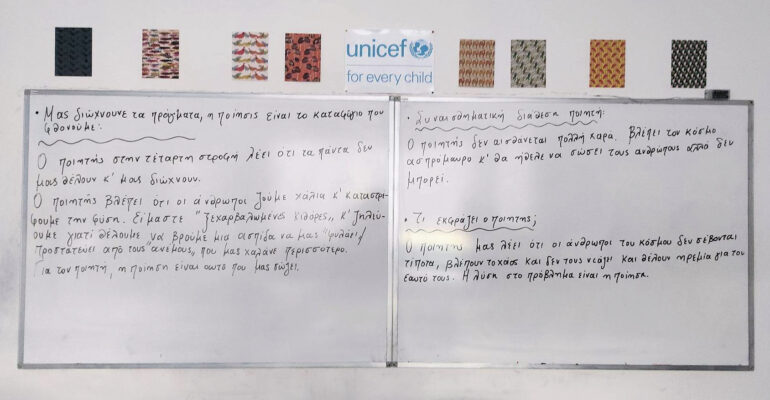 unicef
for every child
• Μας διώχνουνε τα πράγματα, η ποίησις είναι το καταφύγιο που
φθονούμε:
Ο ποιητής στην τέταρτη στροφή λέει ότι τα πάντα δεν
μας θέλουν κ' μας διώχνουν.
Ο ποιητής βλέπει ότι οι άνθρωποι ζούμε χάλια κ' καταστρέ-
φουμε την φύση. Είμαστε "ξεχαρβαλωμένες κιθάρες", κ' ζηλεύ-
ουμε γιατί θέλουμε να βρούμε μια ασπίδα να μας "φυλάει /
προστατεύει από τους "ανέμους", που μας χαλάνε περισσότερο.
Για τον ποιητή, η ποίηση είναι αυτό που μας σώζει.
• Συναισθηματική διάθεση ποιητή:
Ο ποιητής δεν αισθάνεται πολλή χαρά. Βλέπει τον κόσμο
ασπρόμαυρο κ' θα ήθελε να σώσει τους ανθρώπους αλλά δεν
μπορεί.
• Τι εκφράζει ο ποιητής;
Ο ποιητής μας λέει ότι οι άνθρωποι του κόσμου δεν σέβονται
τίποτα, βλέπουν το χάος και δεν τους νοιάζει και θέλουν ηρεμία για τον
εαυτό τους. Η λύση στο πρόβλημα είναι η ποίηση.